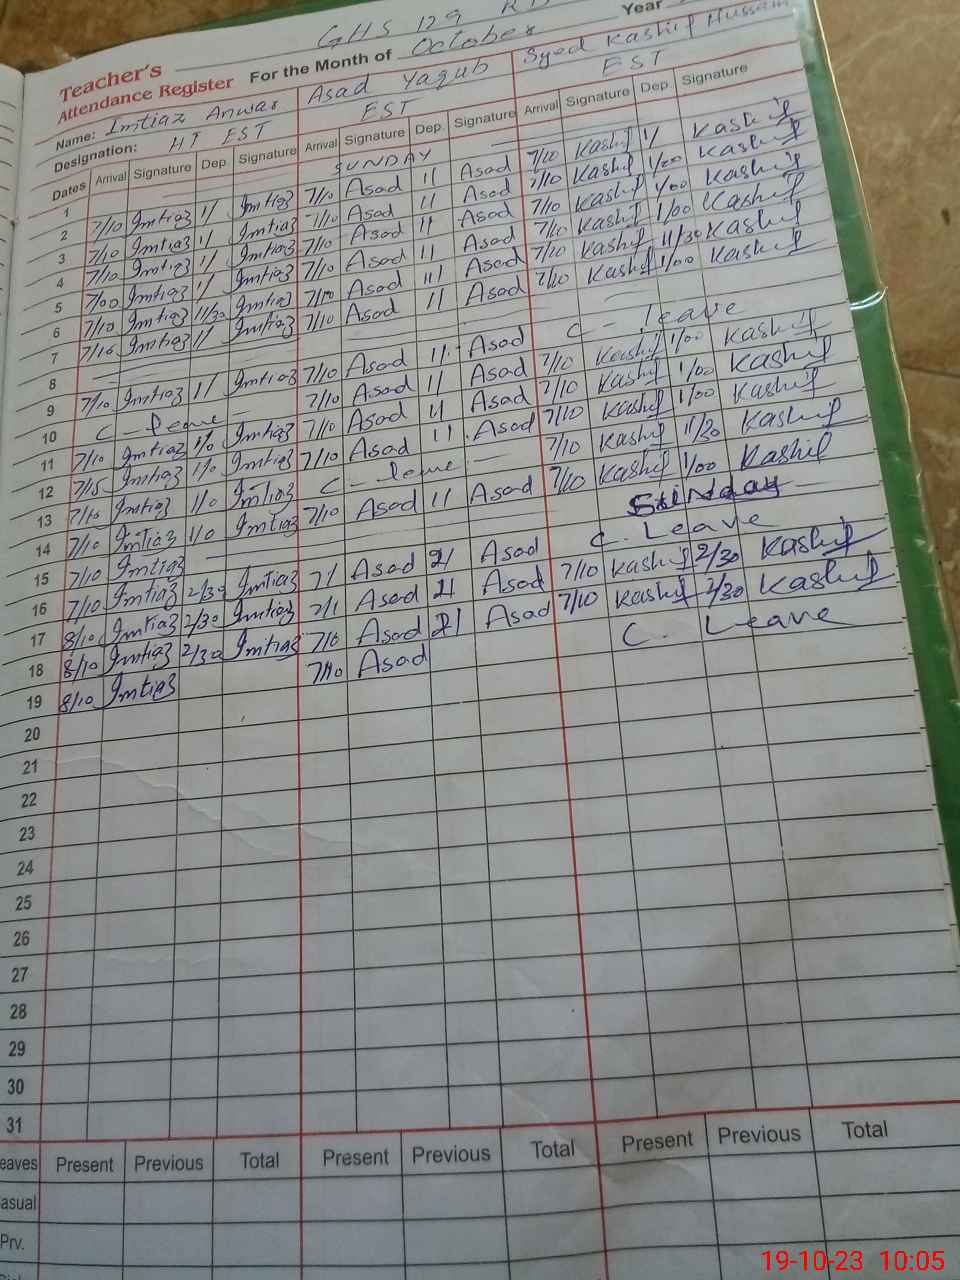 GHS 129
Teacher's Year
Attendance Register For the Month of October
Name: Imtiaz Anwar Asad Yaqub Syed Kashif Hussain
Designation: HT EST EST EST
Dates Arrival Signature Dep. Signature Arrival Signature Dep. Signature Arrival Signature Dep. Signature
1 SUNDAY
2 7/10 Imtiaz 1/ Imtiaz 7/10 Asad 11 Asad 7/10 Kashif 1/ Kashif
3 7/10 Imtiaz 1/ Imtiaz 7/10 Asad 11 Asad 7/10 Kashif 1/00 Kashif
4 7/10 Imtiaz 1/ Imtiaz 7/10 Asad 11 Asad 7/10 Kashif 1/00 Kashif
5 7/00 Imtiaz 1/ Imtiaz 7/10 Asad 11 Asad 7/10 Kashif 1/00 Kashif
6 7/10 Imtiaz 11/30 Imtiaz 7/10 Asad 11/ Asad 7/10 Kashif 11/30 Kashif
7 7/10 Imtiaz 1/ Imtiaz 7/10 Asad 11 Asad 7/10 Kashif 1/00 Kashif
8
9 7/10 Imtiaz 1/ Imtiaz 7/10 Asad 11 Asad C - leave
10 C - leave 7/10 Asad 11 Asad 7/10 Kashif 1/00 Kashif
11 7/10 Imtiaz 1/0 Imtiaz 7/10 Asad 11 Asad 7/10 Kashif 1/00 Kashif
12 7/15 Imtiaz 1/0 Imtiaz 7/10 Asad 11 Asad 7/10 Kashif 1/00 Kashif
13 7/10 Imtiaz 1/0 Imtiaz C - leave 7/10 Kashif 11/30 Kashif
14 7/10 Imtiaz 1/0 Imtiaz 7/10 Asad 11 Asad 7/10 Kashif 1/00 Kashif
15 7/10 Imtiaz Sunday
16 7/10 Imtiaz 2/30 Imtiaz 7/1 Asad 21 Asad C. Leave
17 8/10 Imtiaz 2/30 Imtiaz 7/1 Asad 21 Asad 7/10 Kashif 2/30 Kashif
18 8/10 Imtiaz 2/30 Imtiaz 7/0 Asad 21 Asad 7/10 Kashif 2/30 Kashif
19 8/10 Imtiaz 7/10 Asad C. Leave
20
21
22
23
24
25
26
27
28
29
30
31
eaves Present Previous Total Present Previous Total Present Previous Total
asual
Prv.
19-10-23 10:05